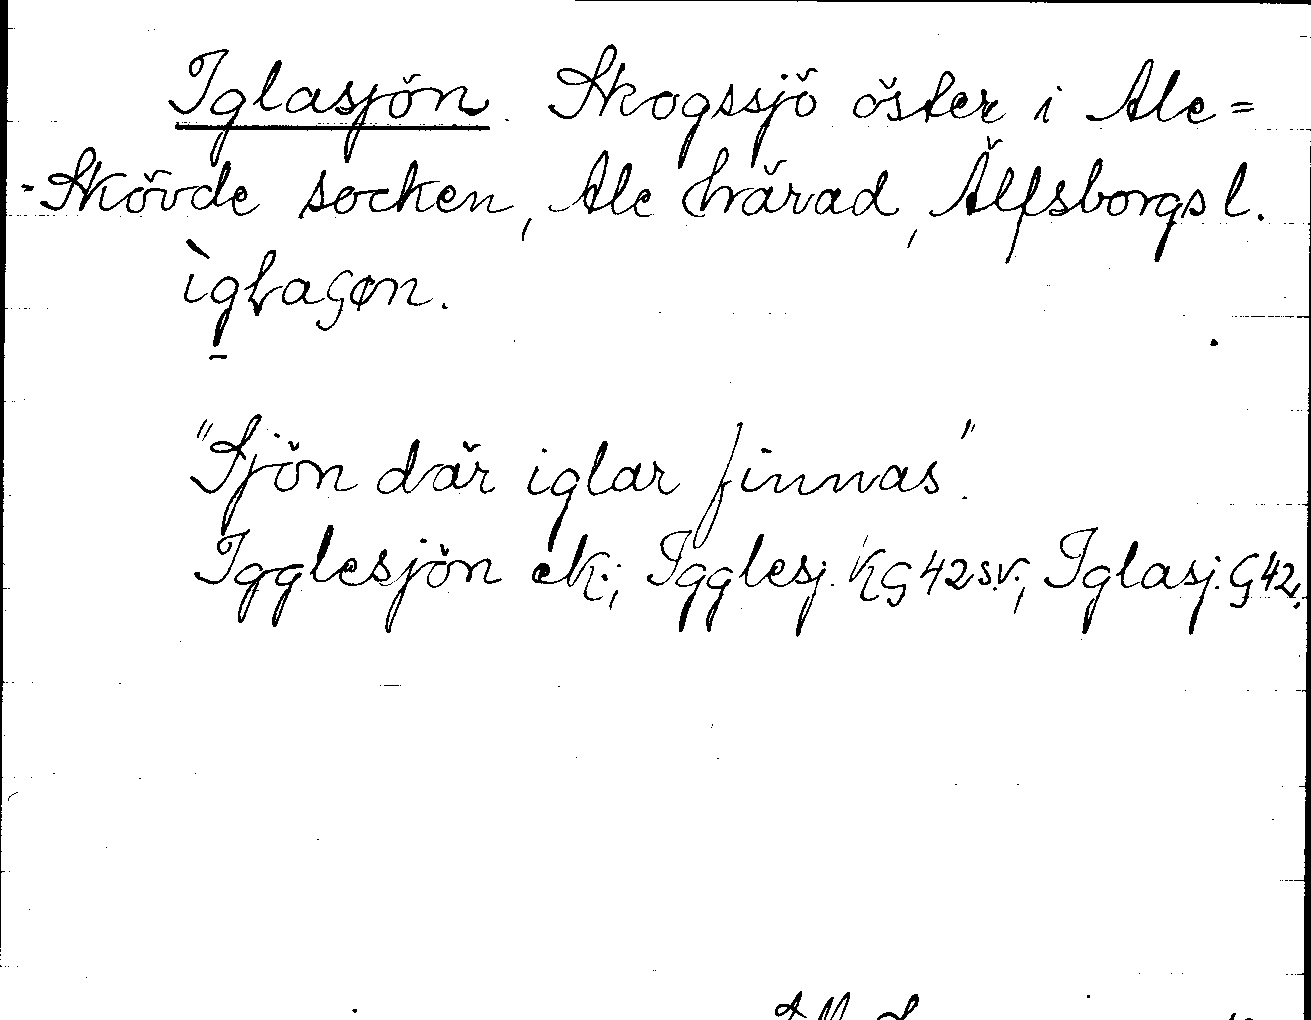 Iglasjön. Skogssjö öster i Ale=
-Skövde socken, Ale härad, Älfsborgs l.
ìglaʂøn.
"Sjön där iglar finnas".
Igglesjön ek.; Igglesj. KG42sv.; Iglasj. G42.